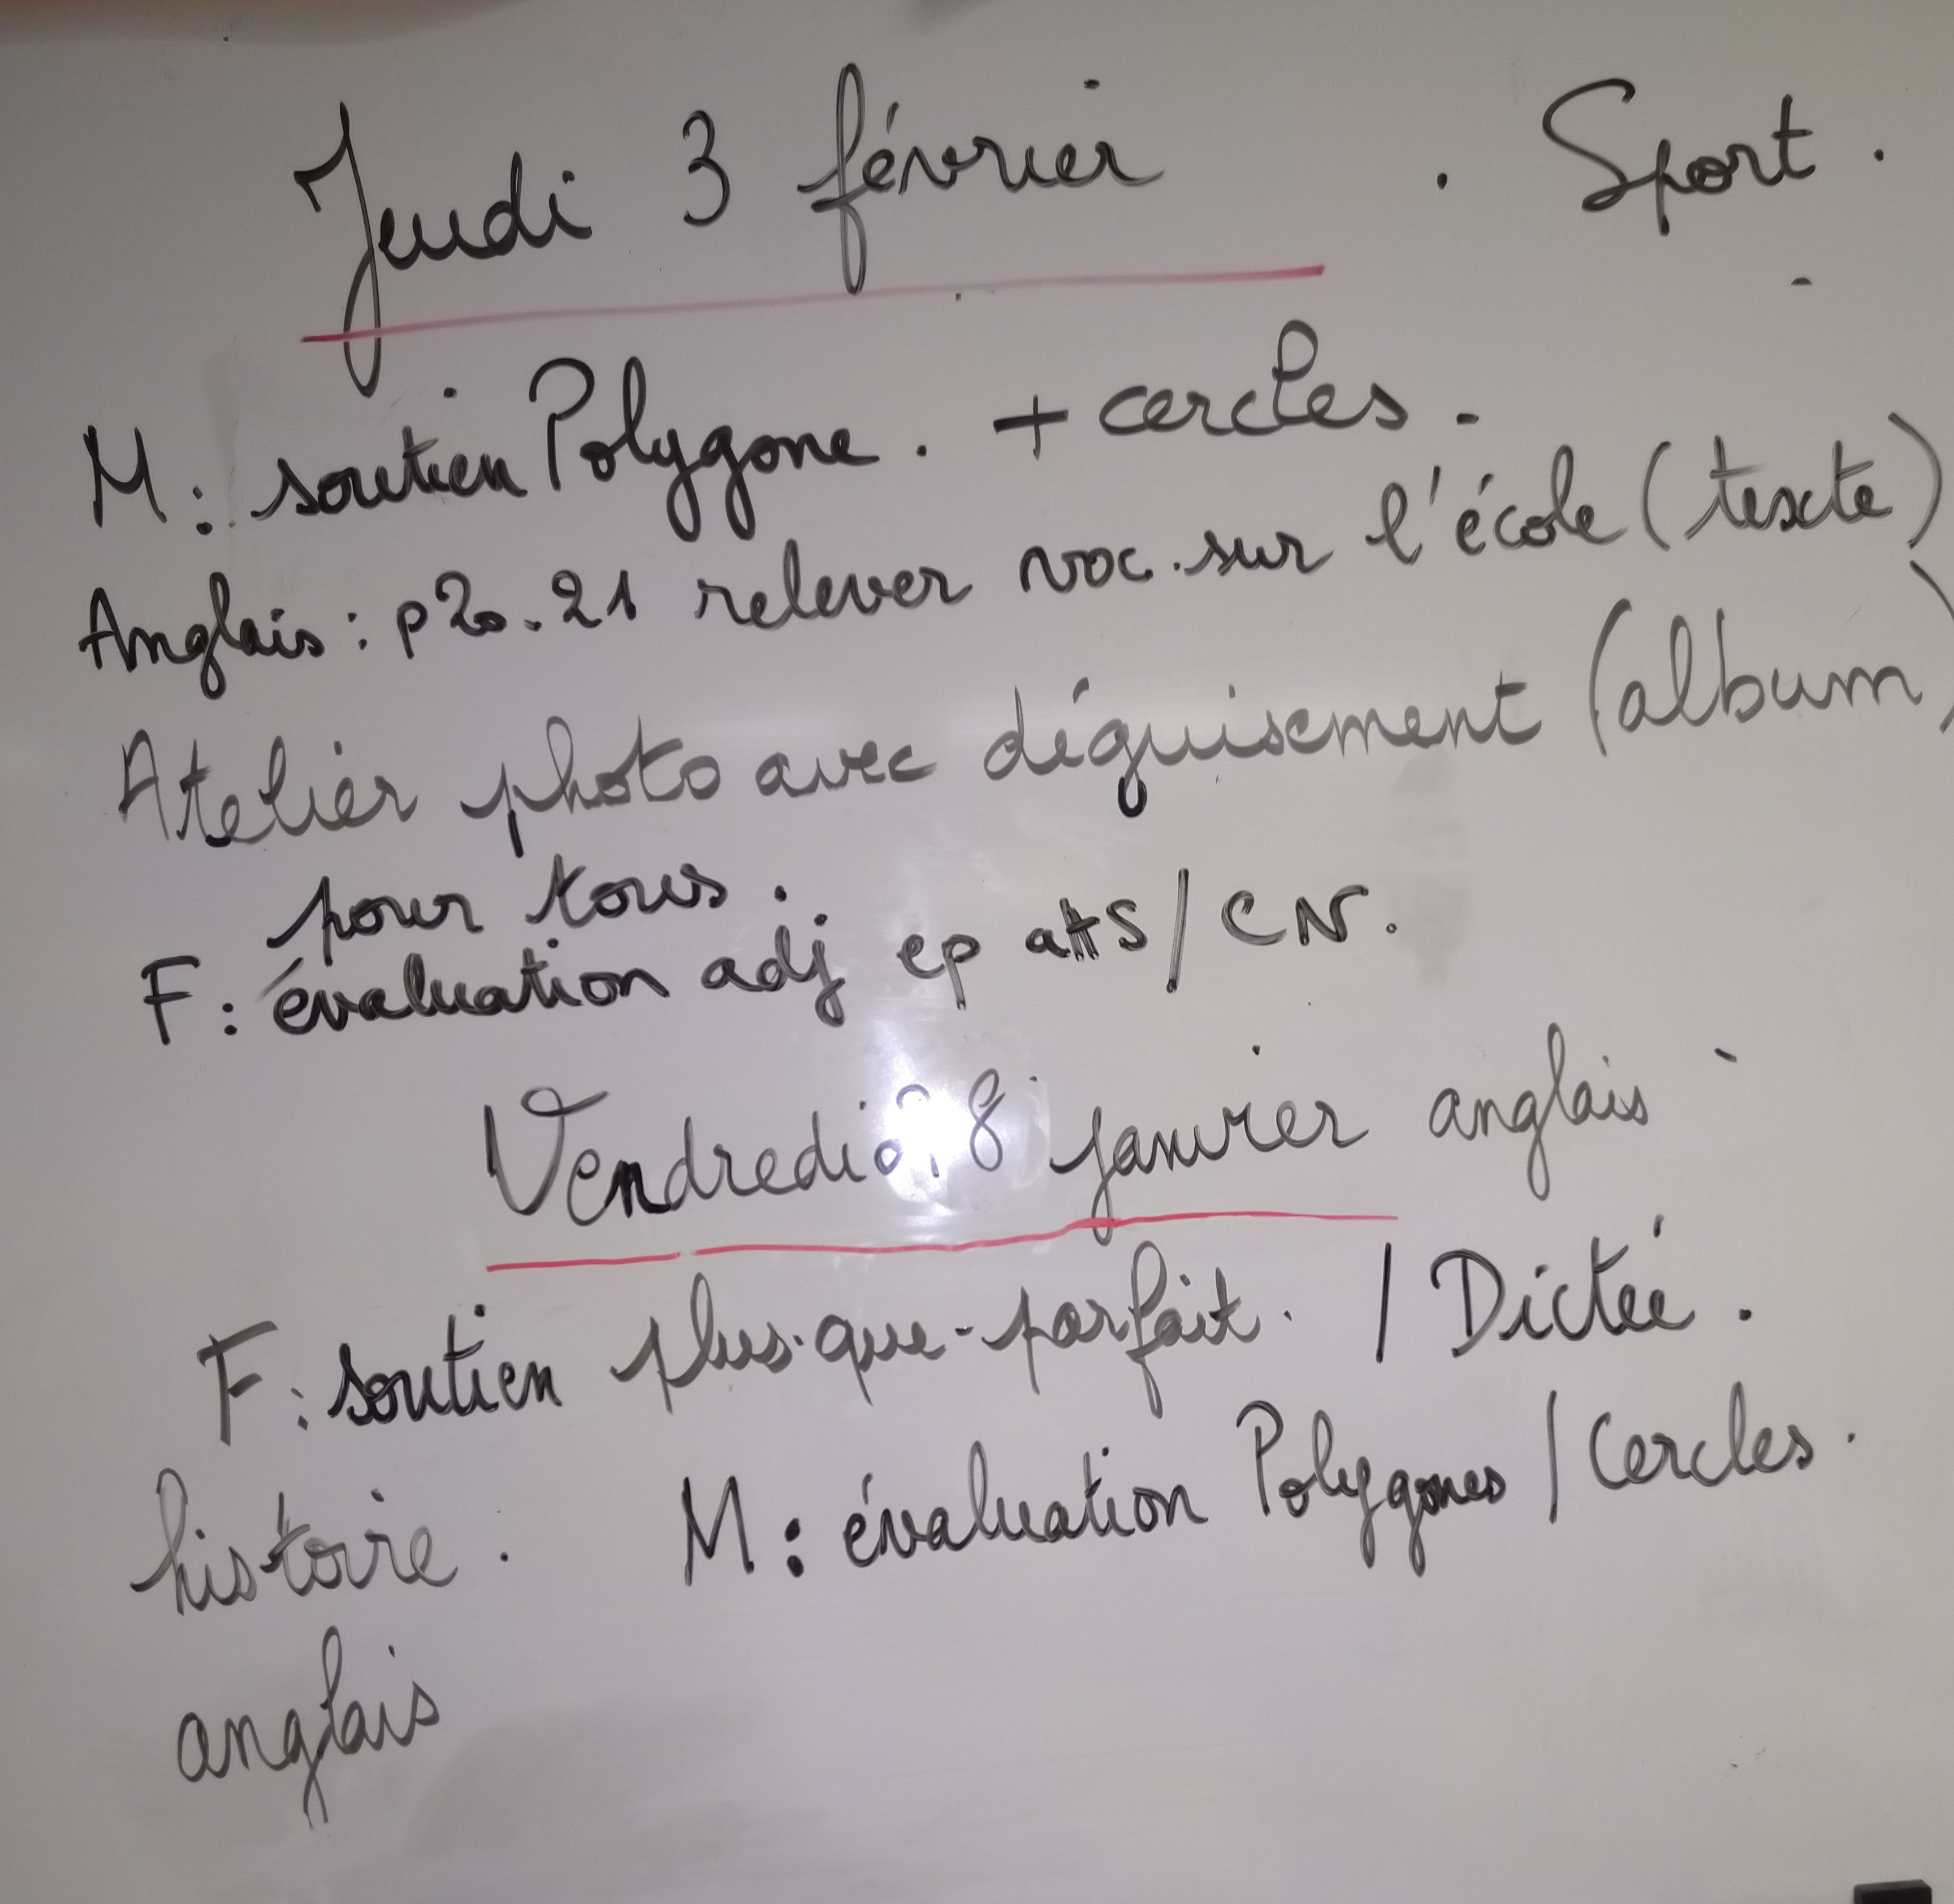 Jeudi 3 février . Sport.
M: soutien Polygone. + cercles.
Anglais: p20.21 relever voc. sur l'école (texte)
Atelier photo avec déguisement (album)
pour tous.
F: évaluation adj ep att S / CN.
Vendredi 28 janvier anglais
F: soutien plus-que-parfait. / Dictée.
histoire. M: évaluation Polygones / Cercles.
anglais